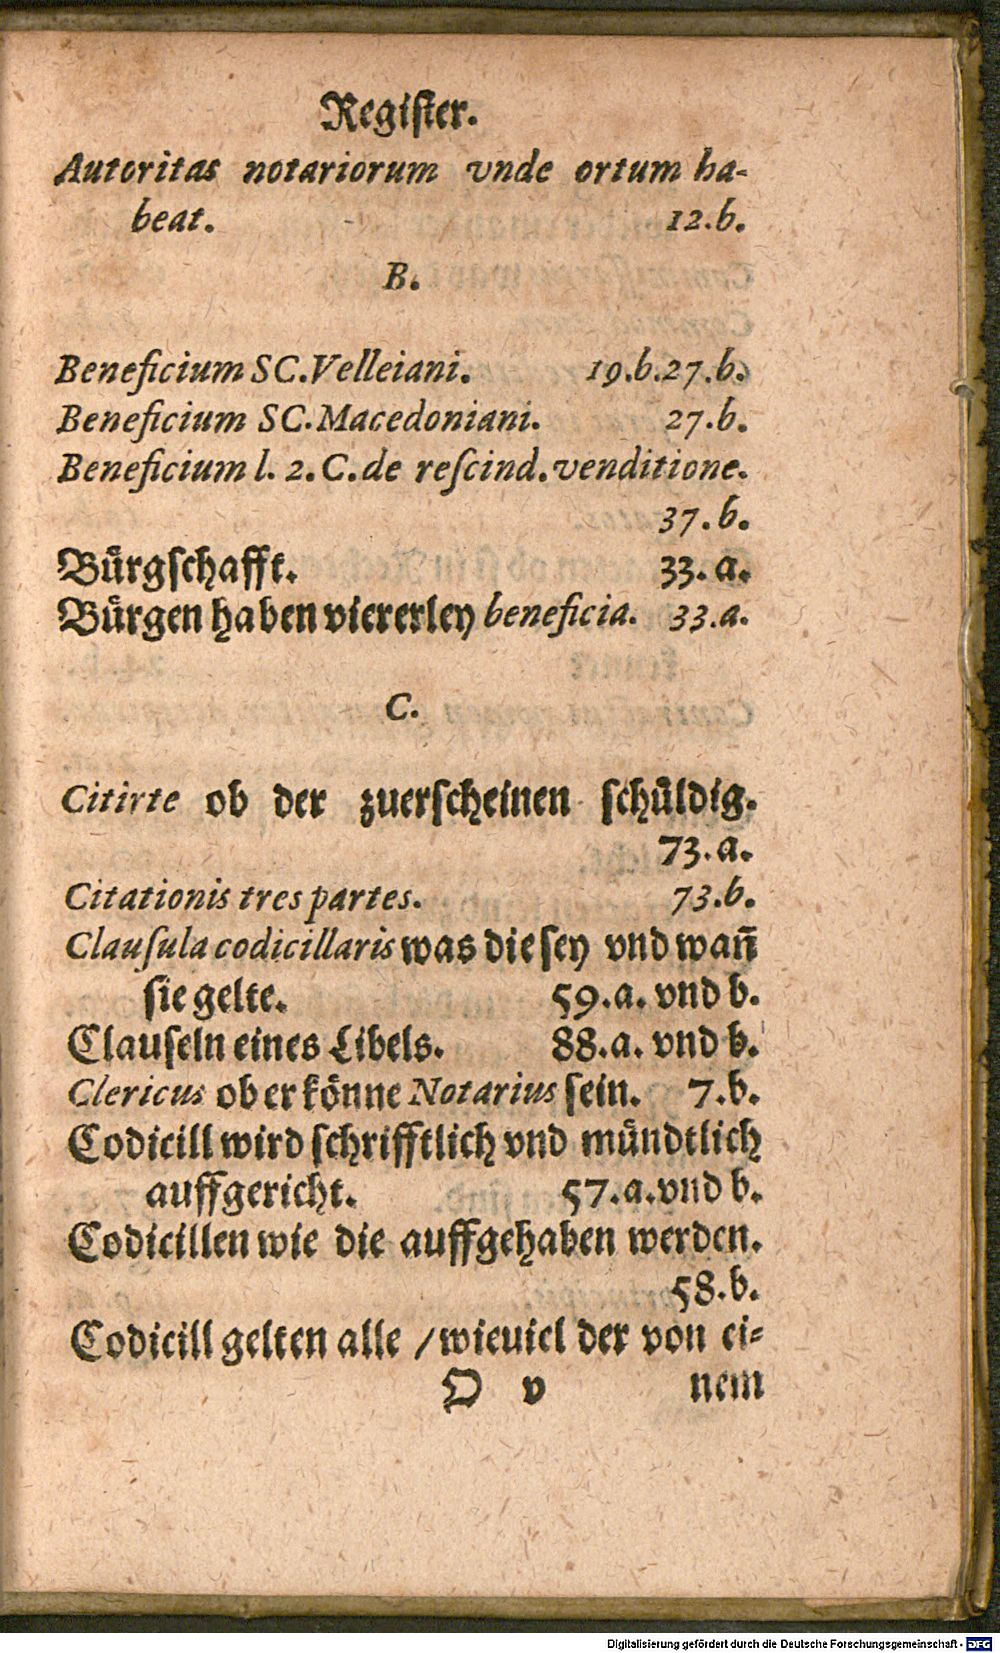 Regiſter.
Autoritas notariorum vnde ortum ha-
beat. 12.b.
B.
Beneficium SC.Velleiani. 19.b.27.b.
Beneficium SC.Macedoniani. 27.b.
Beneficium l. 2. C. de reſcind. venditione.
37.b.
Buͤrgſchafft. 33.a.
Buͤrgen haben viererley beneficia. 33.a.
C.
Citirte ob der zuerſcheinen ſchuͤldig.
73.a.
Citationis tres partes. 73.b.
Clauſula codicillaris was die ſey vnd wañ
ſie gelte. 59.a. vnd b.
Clauſeln eines Libels. 88.a. vnd b.
Clericus ob er koͤnne Notarius ſein. 7.b.
Codicill wird ſchrifftlich vnd muͤndtlich
auffgericht. 57.a.vnd b.
Codicillen wie die auffgehaben werden.
58.b.
Codicill gelten alle / wieuiel der von ei-
O v nem
Digitalisierung gefördert durch die Deutsche Forschungsgemeinschaft - DFG